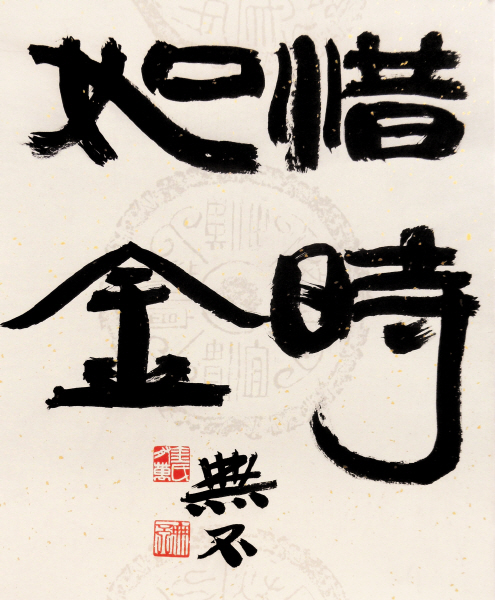 惜時
如金
無不